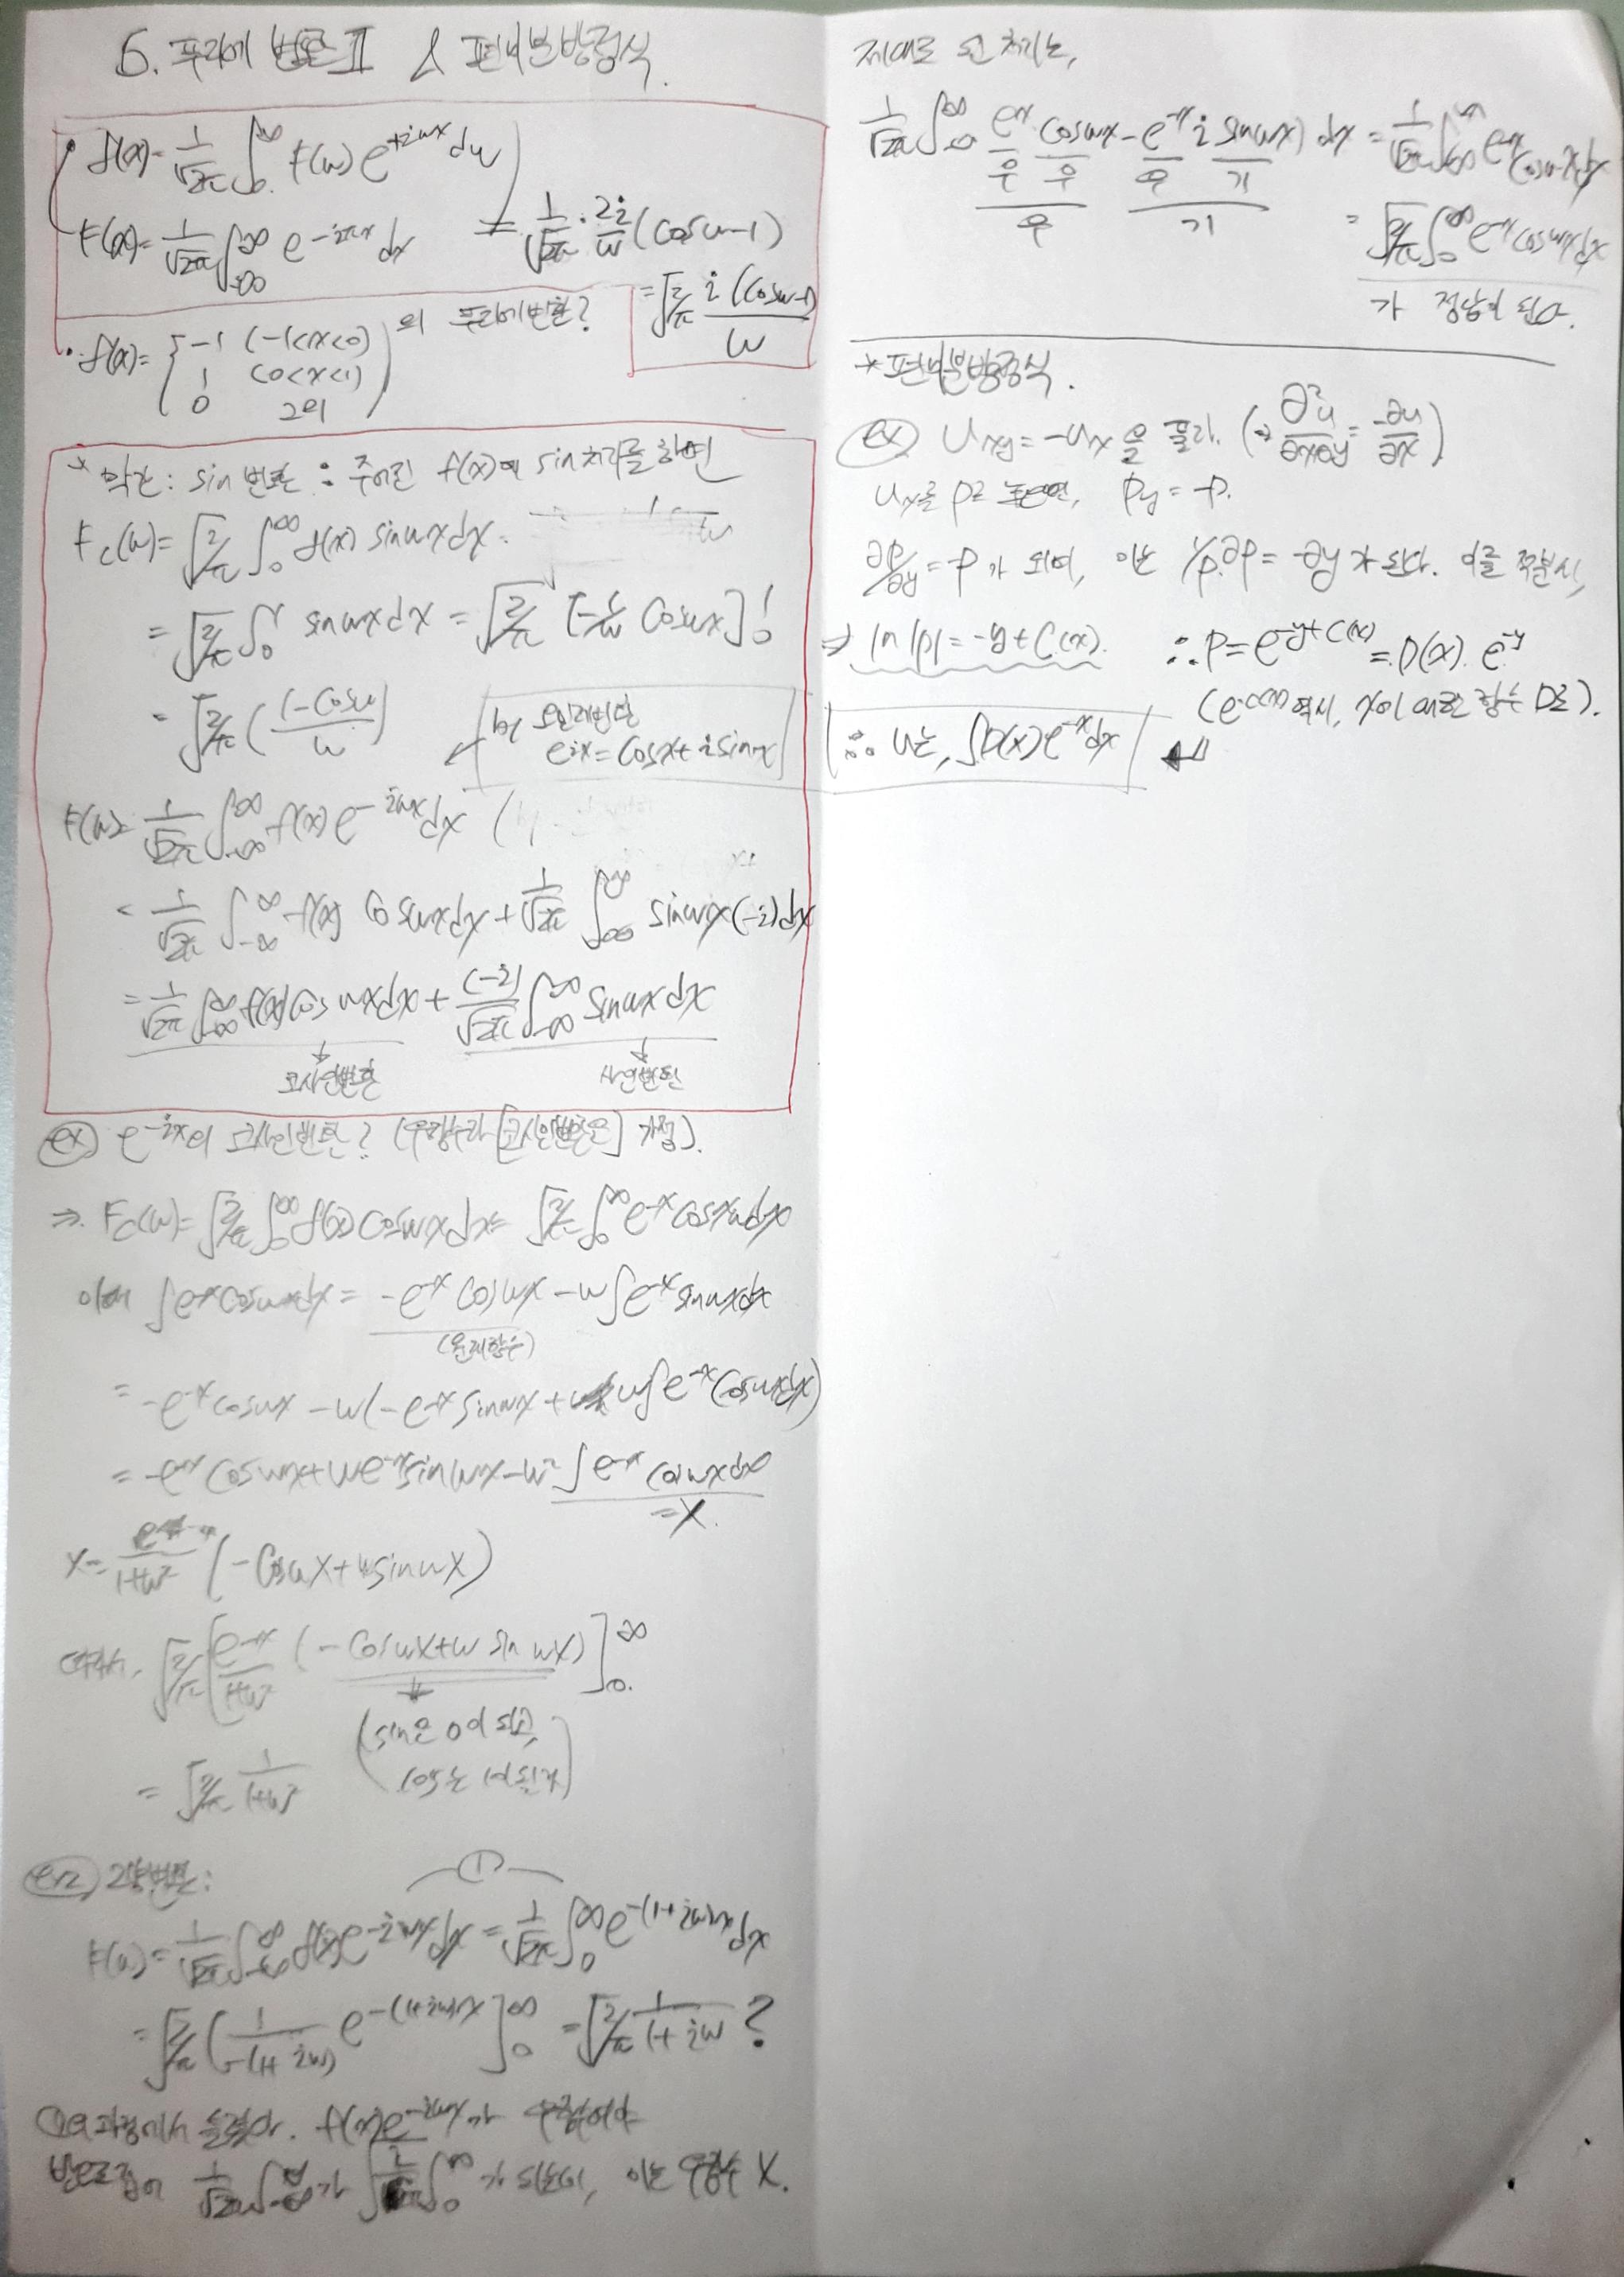 6. 푸리에 변환 II & 편미분방정식.
f(x)= 1/√2π ∫ F(w) e^{+iwx} dw
F(x)= 1/√2π ∫_{-∞}^{∞} e^{-iwx} dx
= 1/√2π · 2i/w (cosw-1)
= √2/π i(cosw-1)/w
• f(x)= { -1 (-1<x<0)
1 (0<x<1)
0 그외 의 푸리에변환?
* 약간: sin 변환 : 주어진 f(x)에 sin처리를 하면
F_c(w)= √2/π ∫_0^∞ f(x) sinwx dx.
= √2/π ∫_0^1 sinwx dx = √2/π [-1/w coswx]_0^1
= √2/π (1-cosw / w)
by 오일러변환
e^{ix} = cosx + i sinx
F(w)= 1/√2π ∫_{-∞}^{∞} f(x) e^{-iwx} dx
= 1/√2π ∫_{-∞}^{∞} f(x) coswx dx + 1/√2π ∫_{-∞}^{∞} sinwx (-i) dx
= 1/√2π ∫_{-∞}^{∞} f(x) cos wx dx + (-i)/√2π ∫_{-∞}^{∞} sinwx dx
코사인변환 사인변환
ex) e^{-ix}의 코사인변환? (우함수라 [코사인변환은] 가정).
⇒. F_c(w)= √2/π ∫_0^∞ f(x) coswx dx = √2/π ∫_0^∞ e^{-x} cosxw dx
이때 ∫e^{-x} coswx dx = -e^{-x} coswx - w∫e^{-x} sinwx dx
(원래함수)
= -e^{-x} coswx - w(-e^{-x} sinwx + w∫e^{-x} coswx dx)
= -e^{-x} coswx + we^{-x} sinwx - w² ∫e^{-x} coswx dx
=X.
X= e^{-x}/1+w² (-coswx + wsinwx)
따라서, √2/π [e^{-x}/1+w² (-coswx + w sin wx)]_0^∞
(sin은 0이 되고,
cos는 1이 된다)
= √2/π 1/1+w²
ex2) 그냥변환:
①
F(w)= 1/√2π ∫_{-∞}^{∞} f(x) e^{-iwx} dx = 1/√2π ∫_0^∞ e^{-(1+iw)x} dx
= √2/π [1/-(1+iw) e^{-(1+iw)x}]_0^∞ = √2/π 1/1+iw ?
①의 과정에서 틀렸다. f(x)e^{-iwx}가 우함수여야
1/√2π ∫_{-∞}^{∞}가 √2/π ∫_0^∞ 가 되는데, 이는 우함수 X.
제대로 된 처리는,
1/√2π ∫_{-∞}^{∞} e^{-x} coswx - e^{-x} i sinwx) dx = 1/√2π ∫_{-∞}^{∞} e^{-x} coswx dx
우 우 우 기
우 기
= √2/π ∫_0^∞ e^{-x} coswx dx
가 정답이 된다.
* 편미분방정식.
ex) U_xy = -U_x 을 풀라. (→ ∂²u/∂x∂y = -∂u/∂x)
U_x를 p로 놓으면, p_y = -p.
∂p/∂y = -p가 되며, 이는 1/p ∂p = -∂y가 된다. 이를 적분시,
⇒ ln|p| = -y + C(x). ∴ p = e^{-y+C(x)} = D(x). e^{-y}
(e^{C(x)} 역시, x에 대한 함수 D로).
∴ U는, ∫D(x)e^{-x}dx